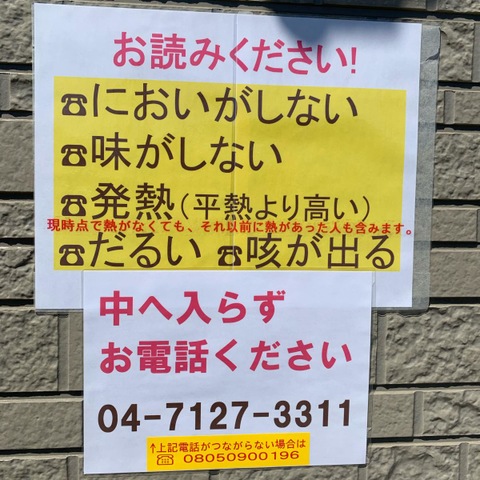 お読みください!
☎においがしない
☎味がしない
☎発熱(平熱より高い)
現時点で熱がなくても、それ以前に熱があった人も含みます。
☎だるい ☎咳が出る
中へ入らず
お電話ください
04-7127-3311
↑上記電話がつながらない場合は
☎08050900196